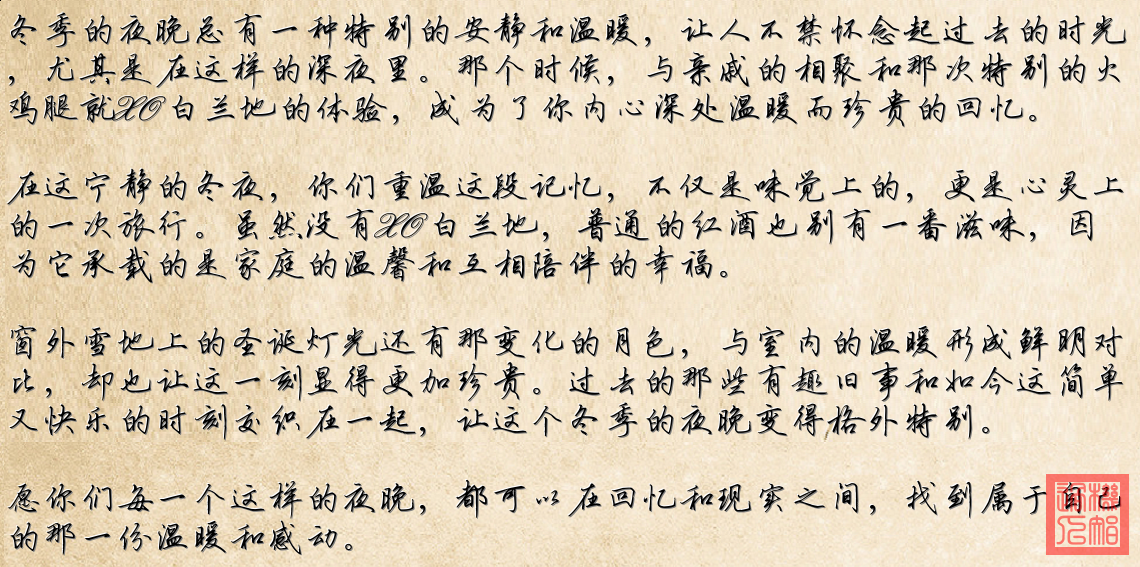 冬季的夜晚总有一种特别的安静和温暖，让人不禁怀念起过去的时光
，尤其是在这样的深夜里。那个时候，与亲戚的相聚和那次特别的火
鸡腿就XO白兰地的体验，成为了你内心深处温暖而珍贵的回忆。
在这宁静的冬夜，你们重温这段记忆，不仅是味觉上的，更是心灵上
的一次旅行。虽然没有XO白兰地，普通的红酒也别有一番滋味，因
为它承载的是家庭的温馨和互相陪伴的幸福。
窗外雪地上的圣诞灯光还有那变化的月色，与室内的温暖形成鲜明对
比，却也让这一刻显得更加珍贵。过去的那些有趣旧事和如今这简单
又快乐的时刻交织在一起，让这个冬季的夜晚变得格外特别。
愿你们每一个这样的夜晚，都可以在回忆和现实之间，找到属于自己
的那一份温暖和感动。